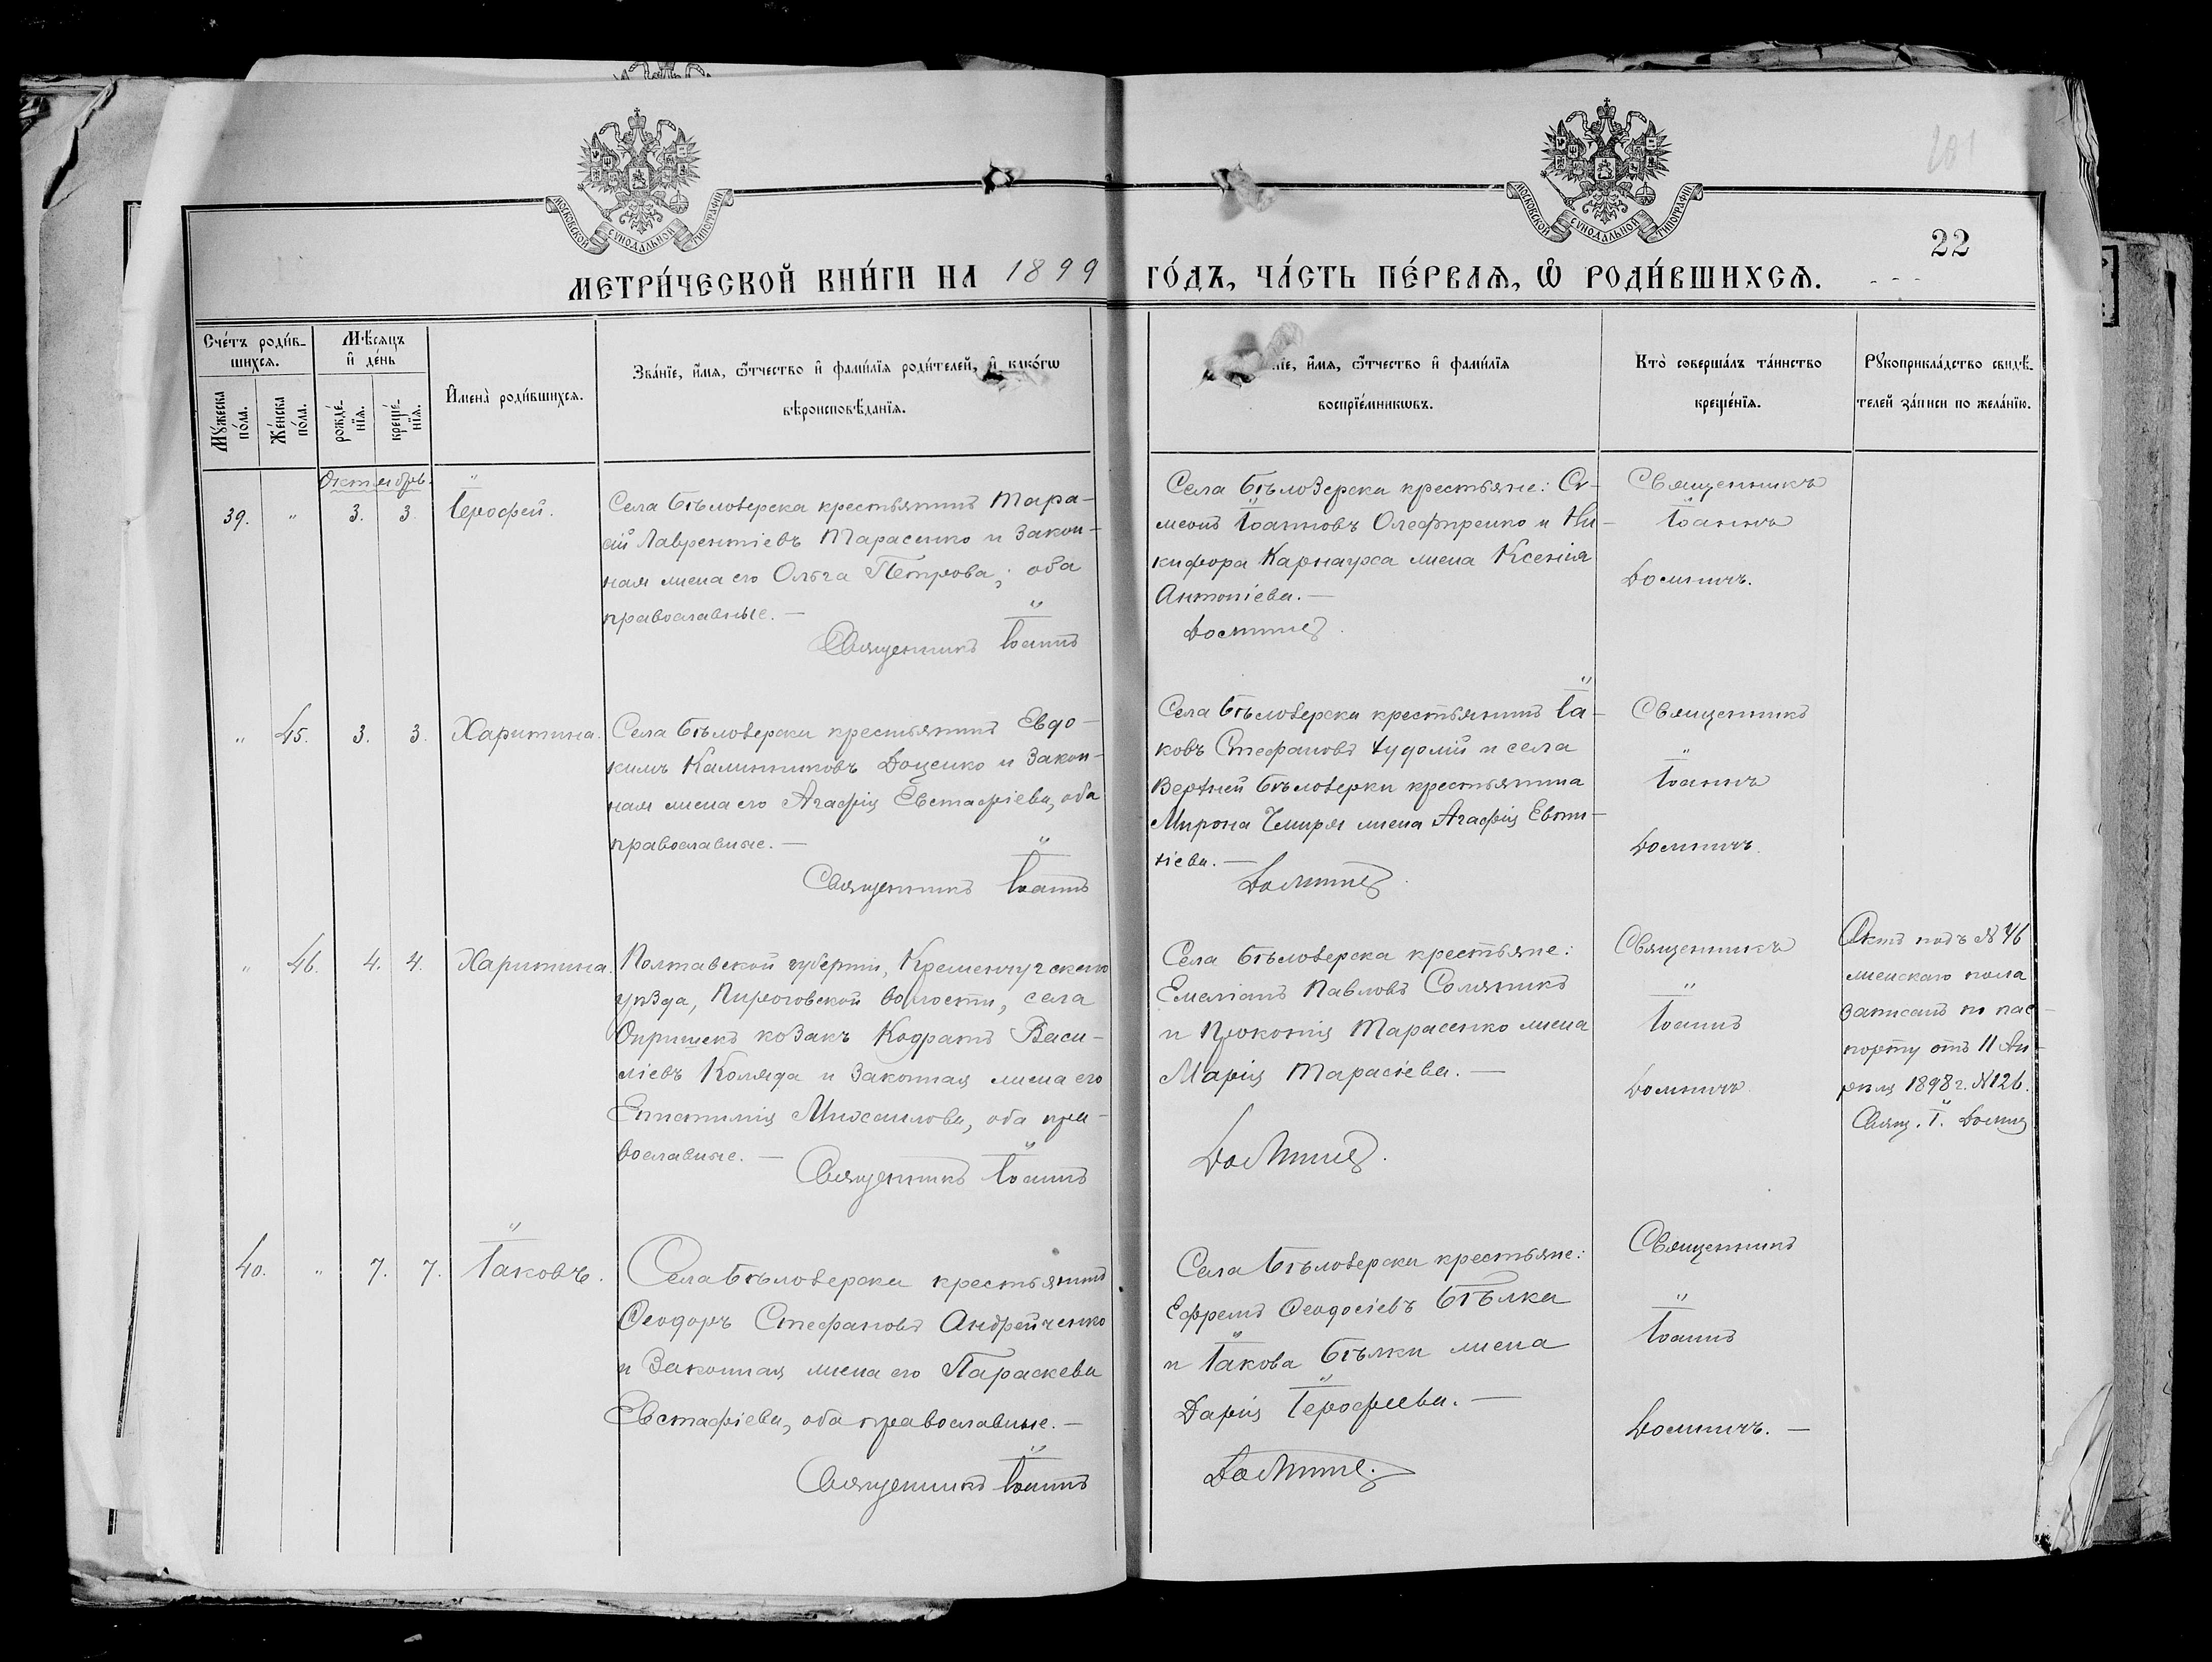 МОСКОВСКОЙ СѴНОДАЛЬНОЙ ТИПОГРАФІИ
МОСКОВСКОЙ СѴНОДАЛЬНОЙ ТИПОГРАФІИ
201
22
МЕТРИ́ЧЕСКОЙ КНИ́ГИ НА 1899 ГО́ДЪ, ЧА́СТЬ ПЕ́РВАѦ, Ѡ҆ РОДИ́ВШИХСѦ.
Сче́тъ роди́в-
шихсѧ.
Мꙋ́жеска
по́ла.
Же́нска
по́ла.
Мѣ́сѧцъ
и҆ де́нь
рожде́-
нїѧ.
креще́-
нїѧ.
И҆мена̀ роди́вшихсѧ.
Зва́нїе, и҆́мѧ, ѻ҆́тчество и҆ фами́лїѧ роди́телей, и҆ како́гѡ
вѣроисповѣ́данїѧ.
нїе, и҆́мѧ, ѻ҆́тчество и҆ фами́лїѧ
воспрїе́мникѡвъ.
Кто̀ соверша́лъ та́инство
креще́нїѧ.
Рꙋкоприкла́дство свидѣ́-
телей за́писи по жела́нїю.
Октябрь.
39. " 3. 3. Іерофей.
Села Бѣлозерска крестьянинъ Тара-
сій Лаврентіевъ Тарасенко и закон-
ная жена его Ольга Петрова, оба
православные. —
Священникъ Іоаннъ
Села Бѣлозерска крестьяне: Си-
меонъ Іоанновъ Олефиренко и Ни-
кифора Карнауха жена Ксенія
Антоніева. —
Доминич
Священникъ
Іоаннъ
Доминичъ.
" 45. 3. 3. Харитина.
Села Бѣлозерска крестьянинъ Евдо-
кимъ Калинниковъ Доценко и закон-
ная жена его Агафія Евстафіева, оба
православные. —
Священникъ Іоаннъ
Села Бѣлозерска крестьянинъ Іа-
ковъ Стефановъ Худолій и села
Верхней Бѣлозерки крестьянина
Мирона Чмиря жена Агафія Евти-
хіева. —
Доминич
Священникъ
Іоаннъ
Доминичъ.
" 46. 4. 4. Харитина.
Полтавской губерніи, Кременчугскаго
уѣзда, Пироговской волости, села
Опришекъ козакъ Кодратъ Васи-
ліевъ Коляда и законная жена его
Епистимія Мисаилова, оба пра-
вославные. —
Священникъ Іоаннъ
Села Бѣлозерска крестьяне:
Емеліанъ Павловъ Соляникъ
и Прокопія Тарасенко жена
Марія Тарасіева. —
Доминич.
Священникъ
Іоаннъ
Доминичъ
Актъ подъ № 46
женскаго пола
записанъ по пас-
порту отъ 11 Ап-
рѣля 1898 г. № 126.
Свящ. І. Доминич
40. " 7. 7. Іаковъ.
Села Бѣлозерска крестьянинъ
Ѳеодоръ Стефановъ Андрейченко
и законная жена его Параскева
Евстафіева, оба православные. —
Священникъ Іоаннъ
Села Бѣлозерска крестьяне:
Ефремъ Ѳеодосіевъ Бѣлка
и Іакова Бѣлки жена
Дарія Іерофеева. —
Доминич.
Священникъ
Іоаннъ
Доминичъ. —